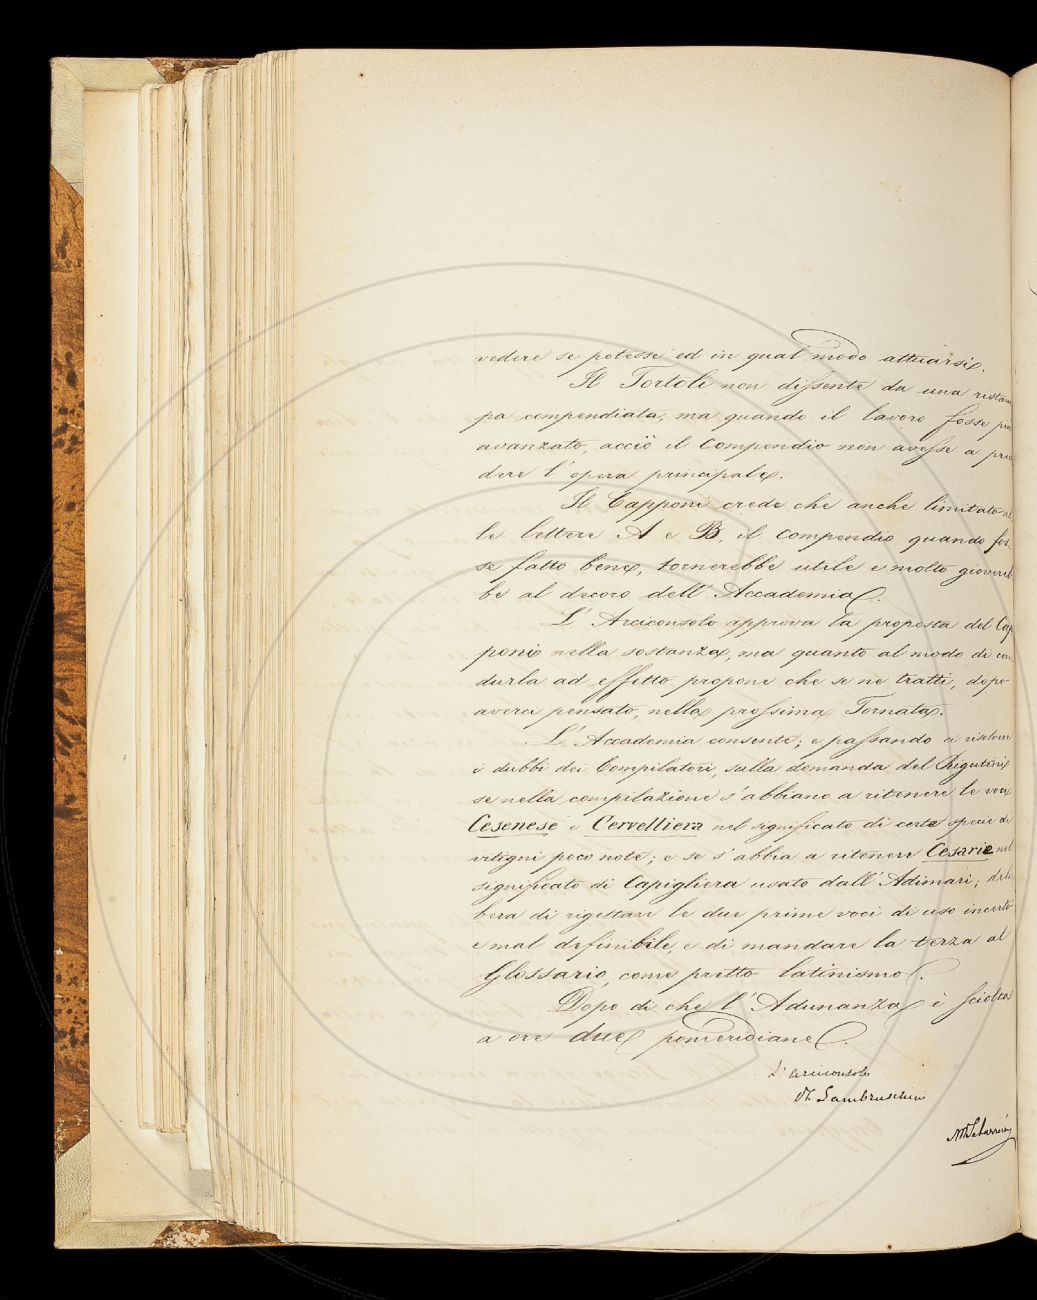 vedere se potesse ed in qual modo attuarsi.
Il Tortoli non dissente da una ristam
pa compendiata, ma quando il lavoro fosse più
avanzato, acciò il Compendio non avesse a pre
dere l'opera principale.
Il Capponi crede che anche limitato al
le lettere A e B, il Compendio quando fos-
se fatto bene, tornerebbe utile e molto gioverib
be al decoro dell'Accademia.
L'Arciconsolo approva la proposta del Cap
poni nella sostanza, ma quanto al modo di con
durla ad effetto propone che se ne tratti, dopo
averci pensato, nella prossima Tornata.
L'Accademia consente; e passando a risolvere
i dubbi dei Compilatori, sulla domanda del Rigutini
se nella compilazione s'abbiano a ritenere le voci
Cesenese e Cervelliera nel significato di certe specie di
vitigni poco note; e se s'abbia a ritenere Cesarie nel
significato di Capigliera usato dall'Adimari; deli
bera di rigettare le due prime voci di uso incerto
e mal definibile, e di mandare la terza al
Glossario, come pretto latinismo.
Dopo di che l'Adunanza è sciolta
a ore due pomeridiane.
L'arciconsolo
R. Lambruschini
M. Tabarrini